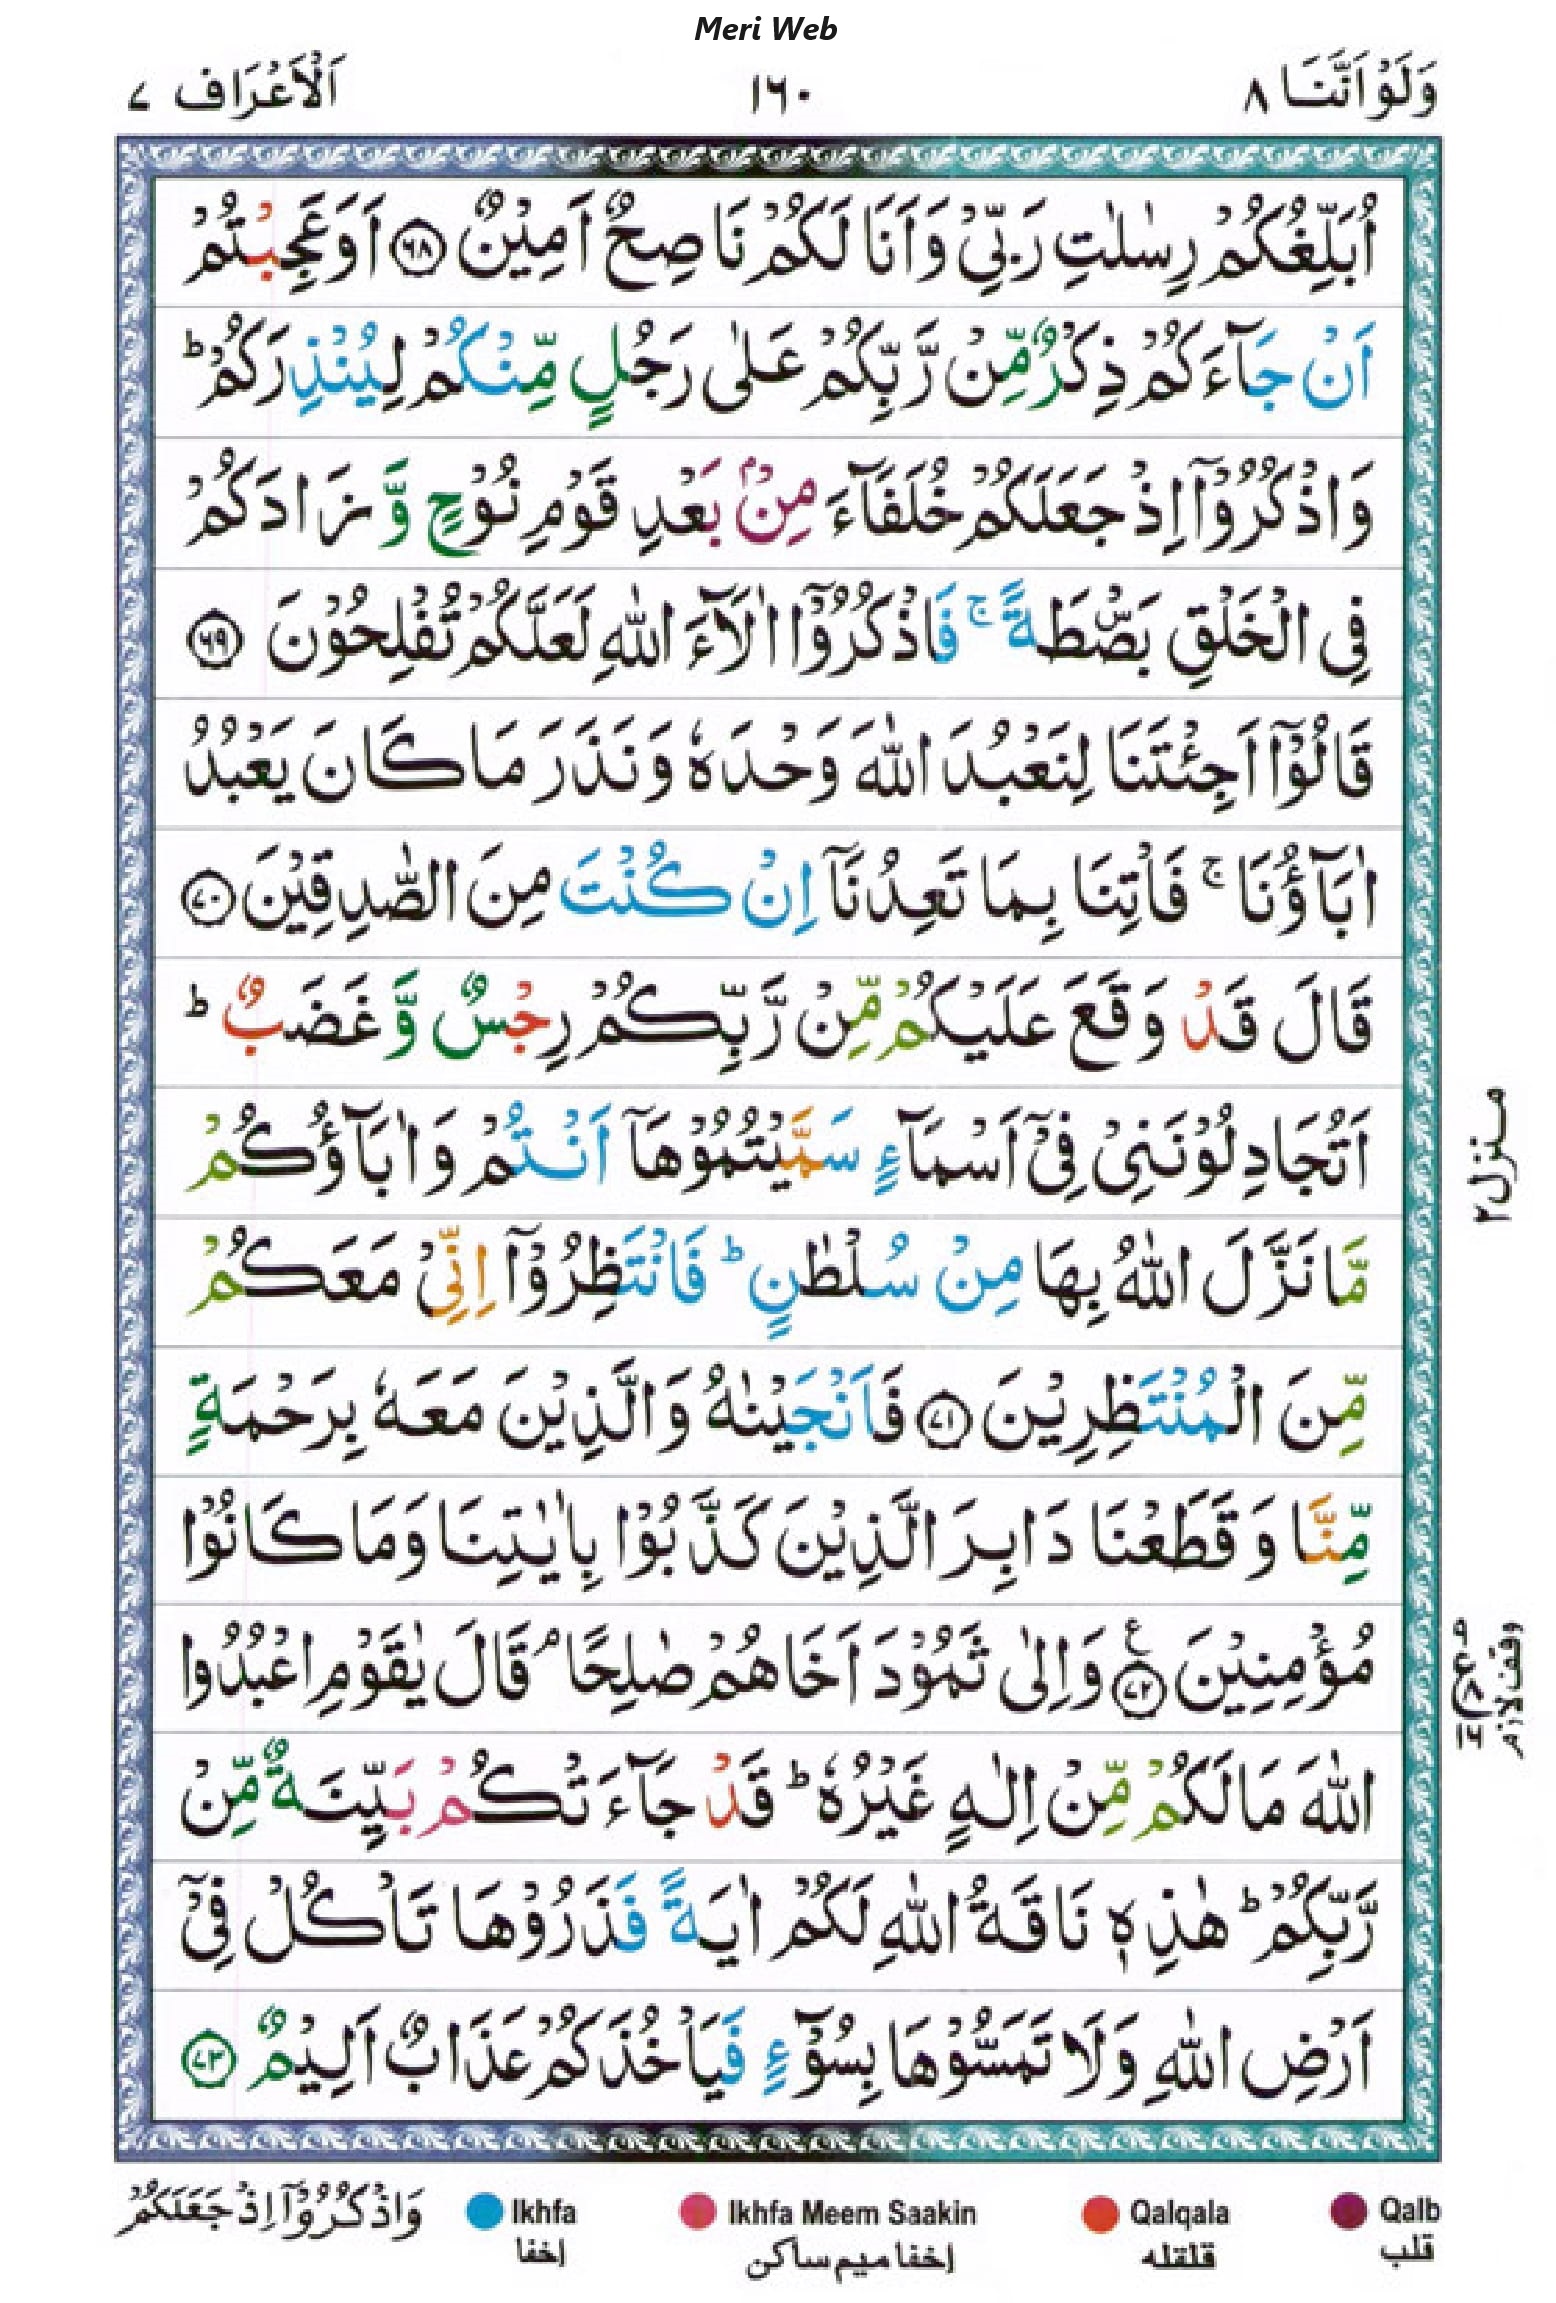 Meri Web
وَلَوْ اَنَّنَا ٨
١٦٠
اَلْاَعْرَاف ٧
اُبَلِّغُكُمْ رِسٰلٰتِ رَبِّيْ وَاَنَا لَكُمْ نَاصِحٌ اَمِيْنٌ ﴿٦٨﴾ اَوَعَجِبْتُمْ
اَنْ جَآءَكُمْ ذِكْرٌ مِّنْ رَّبِّكُمْ عَلٰى رَجُلٍ مِّنْكُمْ لِيُنْذِرَكُمْ ؕ
وَاذْكُرُوْٓا اِذْ جَعَلَكُمْ خُلَفَآءَ مِنْۢ بَعْدِ قَوْمِ نُوْحٍ وَّ زَادَكُمْ
فِى الْخَلْقِ بَصْۜطَةً ۚ فَاذْكُرُوْٓا اٰلَآءَ اللّٰهِ لَعَلَّكُمْ تُفْلِحُوْنَ ﴿٦٩﴾
قَالُوْٓا اَجِئْتَنَا لِنَعْبُدَ اللّٰهَ وَحْدَهٗ وَنَذَرَ مَا كَانَ يَعْبُدُ
اٰبَآؤُنَا ۚ فَاْتِنَا بِمَا تَعِدُنَآ اِنْ كُنْتَ مِنَ الصّٰدِقِيْنَ ﴿٧٠﴾
قَالَ قَدْ وَقَعَ عَلَيْكُمْ مِّنْ رَّبِّكُمْ رِجْسٌ وَّ غَضَبٌ ؕ
اَتُجَادِلُوْنَنِيْ فِيْٓ اَسْمَآءٍ سَمَّيْتُمُوْهَآ اَنْتُمْ وَاٰبَآؤُكُمْ
مَّا نَزَّلَ اللّٰهُ بِهَا مِنْ سُلْطٰنٍ ؕ فَانْتَظِرُوْٓا اِنِّيْ مَعَكُمْ
مِّنَ الْمُنْتَظِرِيْنَ ﴿٧١﴾ فَاَنْجَيْنٰهُ وَالَّذِيْنَ مَعَهٗ بِرَحْمَةٍ
مِّنَّا وَقَطَعْنَا دَابِرَ الَّذِيْنَ كَذَّبُوْا بِاٰيٰتِنَا وَمَا كَانُوْا
مُؤْمِنِيْنَ ﴿٧٢﴾ ع وَاِلٰى ثَمُوْدَ اَخَاهُمْ صٰلِحًا ۘ قَالَ يٰقَوْمِ اعْبُدُوا
اللّٰهَ مَا لَكُمْ مِّنْ اِلٰهٍ غَيْرُهٗ ؕ قَدْ جَآءَتْكُمْ بَيِّنَةٌ مِّنْ
رَّبِّكُمْ ؕ هٰذِهٖ نَاقَةُ اللّٰهِ لَكُمْ اٰيَةً فَذَرُوْهَا تَاْكُلْ فِيْٓ
اَرْضِ اللّٰهِ وَلَا تَمَسُّوْهَا بِسُوْٓءٍ فَيَاْخُذَكُمْ عَذَابٌ اَلِيْمٌ ﴿٧٣﴾
منزل ٢
وقف لازم
وَاذْكُرُوْٓا اِذْ جَعَلَكُمْ
Ikhfa
إخفا
Ikhfa Meem Saakin
إخفا ميم ساكن
Qalqala
قلقله
Qalb
قلب